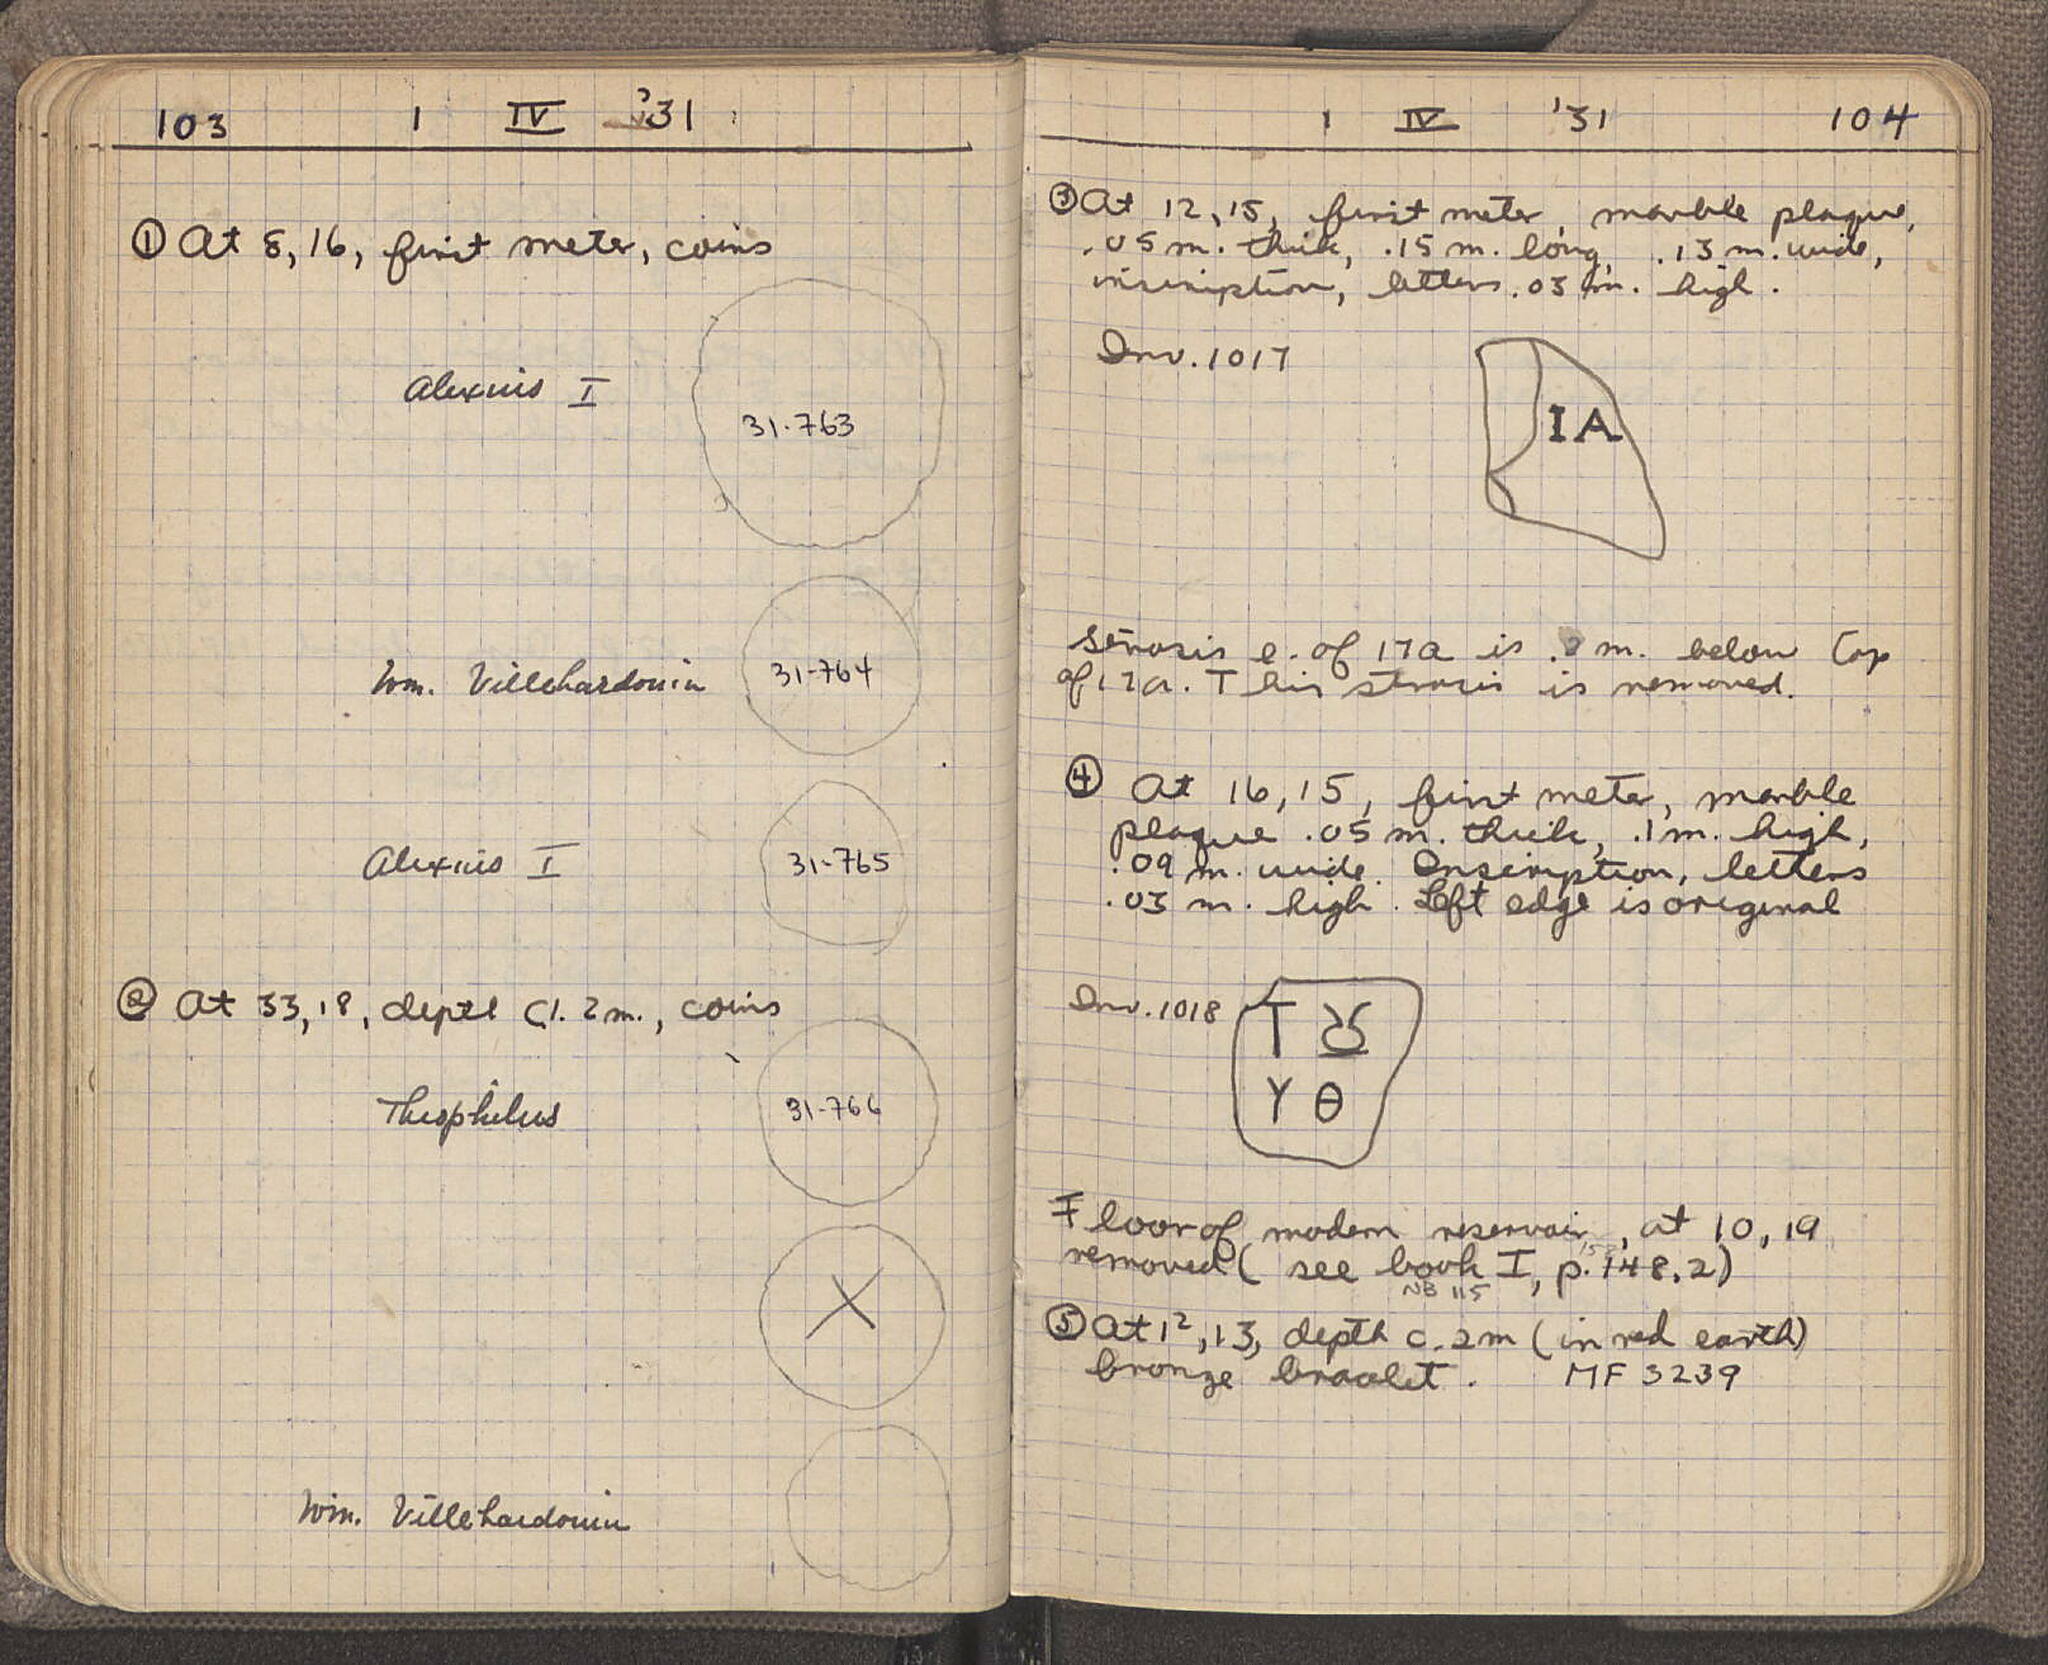 103 1 IV '31
① At 8, 16, first meter, coins
Alexius I 31-763
Wm. Villehardouin 31-764
Alexius I 31-765
② At 33, 18, depth c1.2m., coins
Theophilus 31-766
X
Wm. Villehardouin
1 IV '31 104
③ At 12, 15, first meter, marble plaque,
.05 m. thick, .15 m. long, .13 m. wide,
inscription, letters .03 m. high.
Inv. 1017
IA
Strosis e. of 17a is m. below top
of 17a. This strosis is removed.
④ At 16, 15, first meter, marble
plaque .05 m. thick, .1 m. high,
.09 m. wide. Inscription, letters
.03 m. high. Left edge is original
Inv. 1018
T
Y θ
Floor of modern reservoir, at 10, 19
removed (see book I, p. 148.2)
NB 115
⑤ At 12, 13, depth c. 2m (in red earth)
bronze bracelet. MF 3239